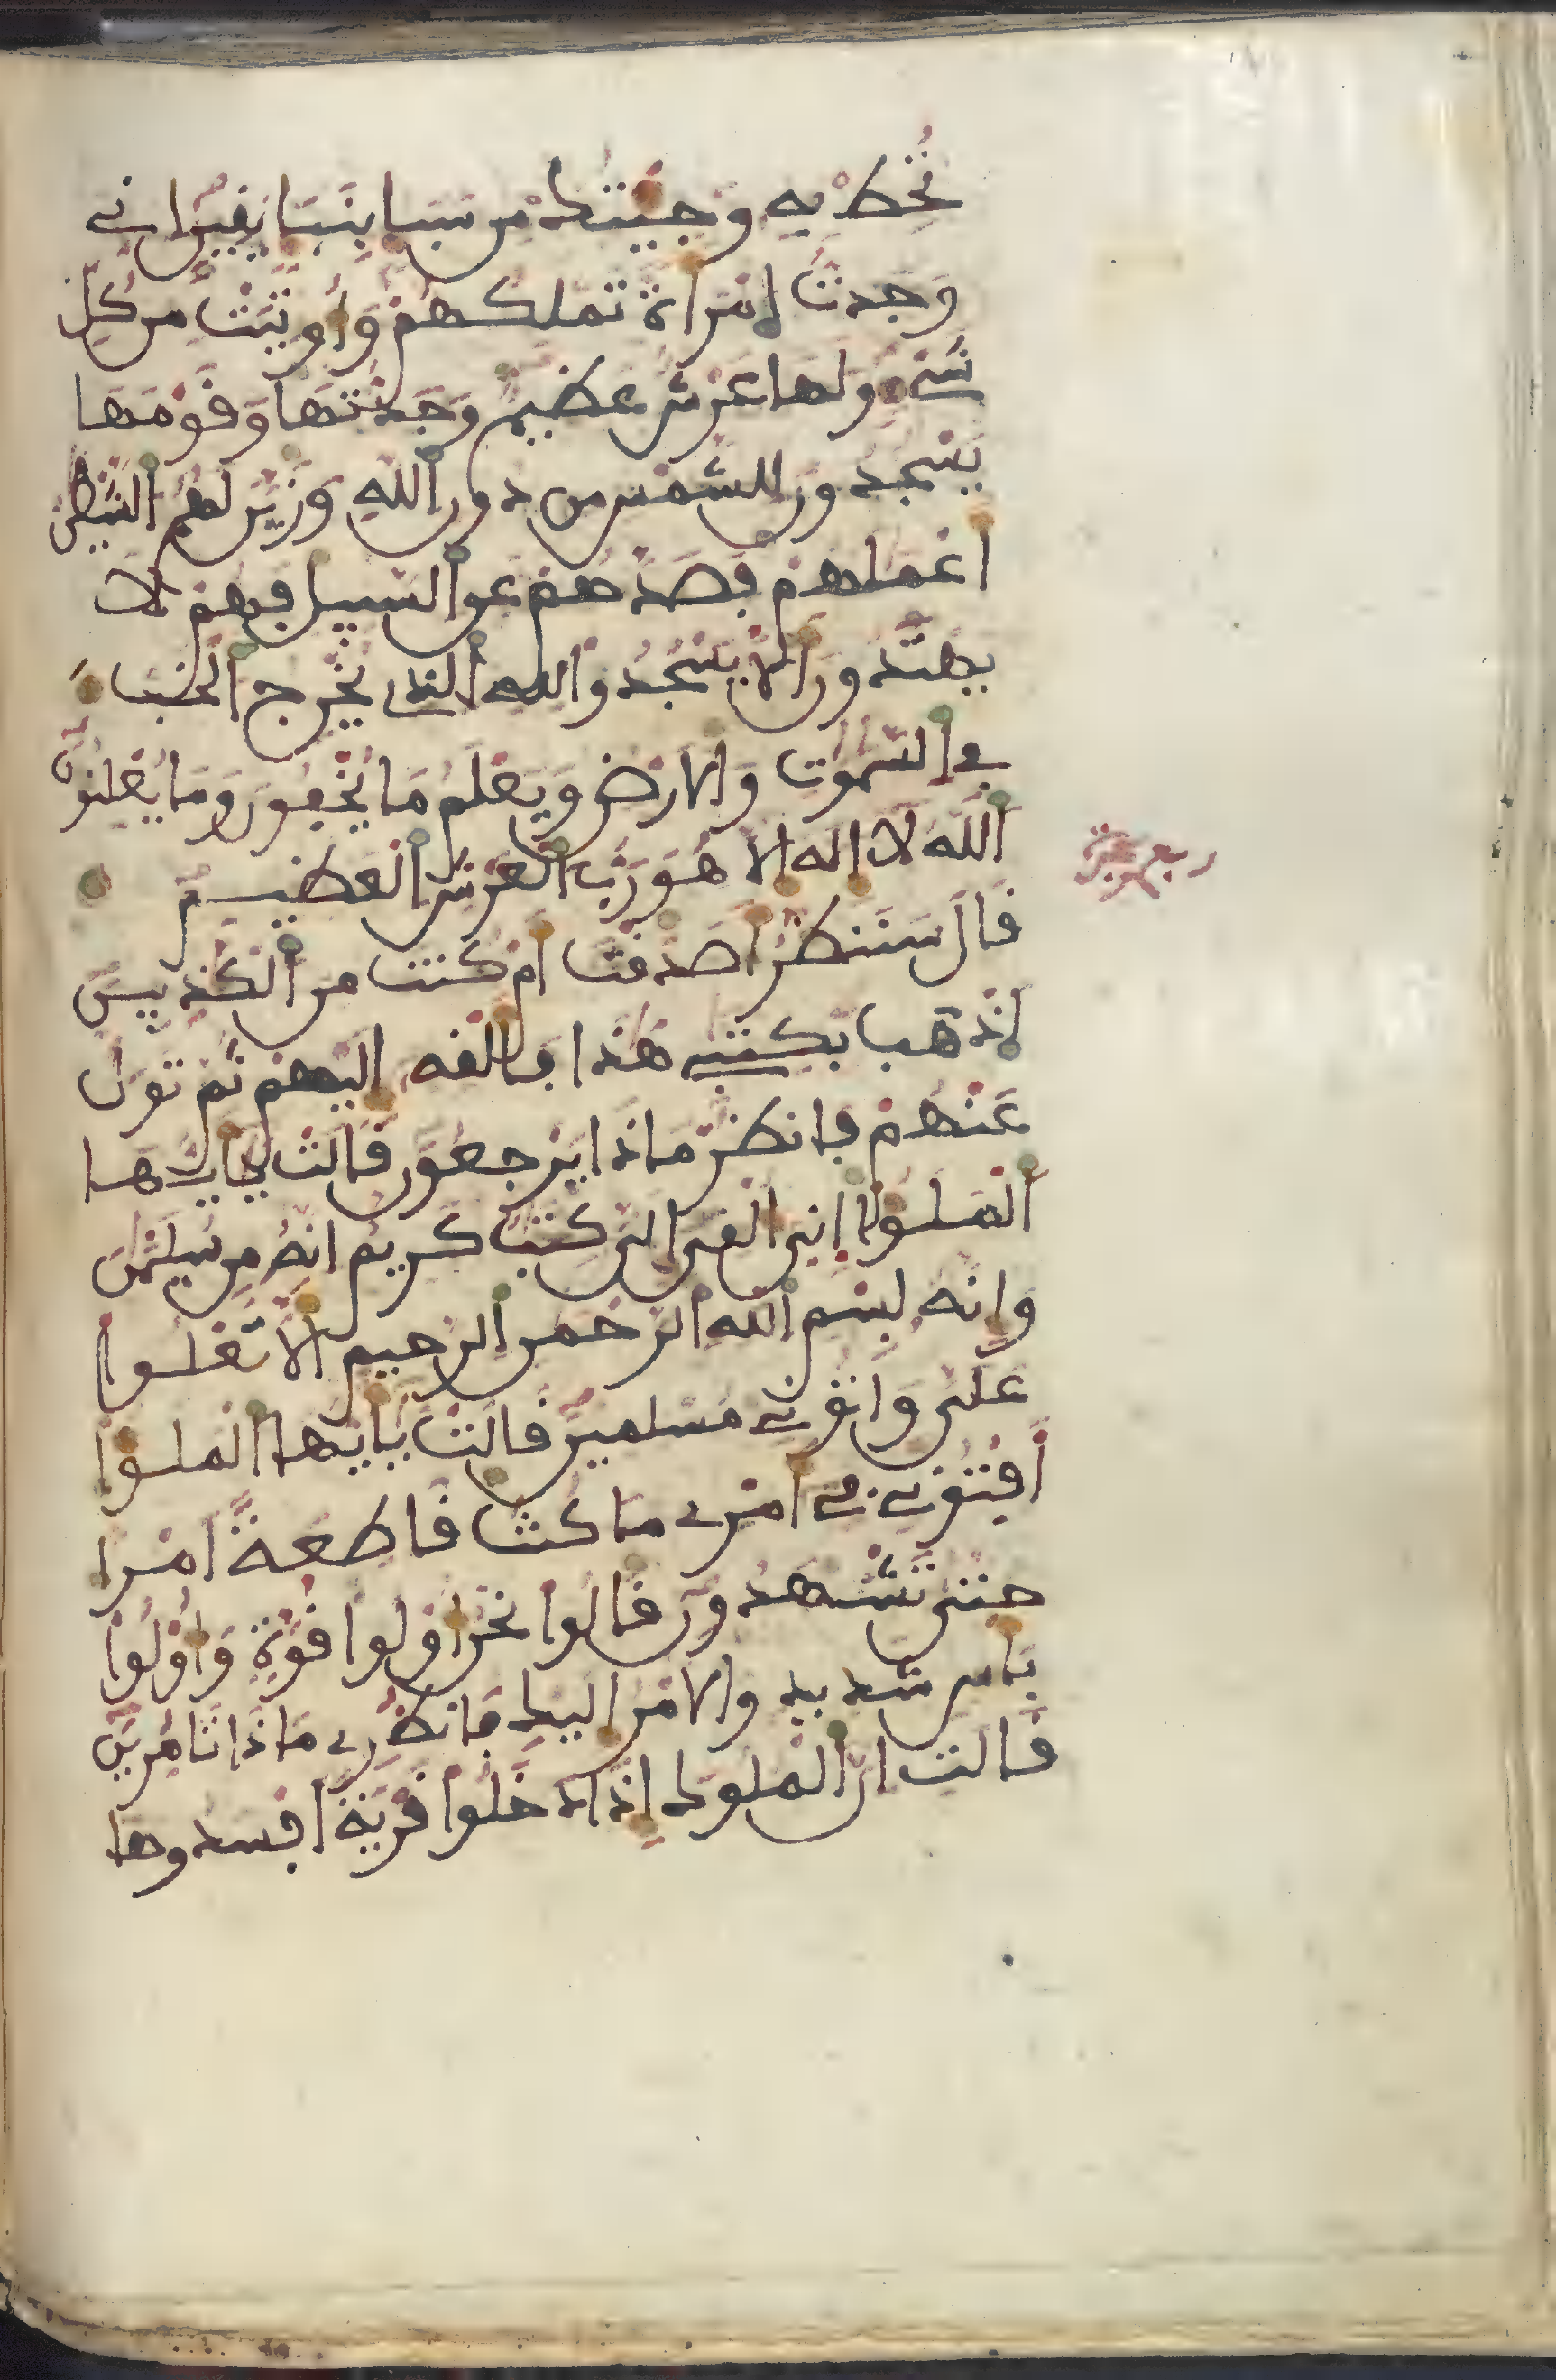 تُحِطْ بِهِ وَجِئْتُكَ مِن سَبَإٍ بِنَبَإٍ يَقِينٍ اِنِّے
وَجَدتُّ اَمْرَأَةً تَمْلِكُهُمْ وَأُوتِيَتْ مِن كُلِّ
شَےْءٍ وَلَهَا عَرْشٌ عَظِيمٌ وَجَدتُّهَا وَقَوْمَهَا
يَسْجُدُونَ لِلشَّمْسِ مِن دُونِ اِللَّهِ وَزَيَّنَ لَهُمُ اُلشَّيْطَٰنُ
أَعْمَٰلَهُمْ فَصَدَّهُمْ عَنِ اِلسَّبِيلِ فَهُمْ لَا
يَهْتَدُونَ أَلَّا يَسْجُدُوا لِلهِ اِلذِے يُخْرِجُ اُلْخَبْءَ
فِے اِلسَّمَٰوَٰتِ وَالَارْضِ وَيَعْلَمُ مَا يُخْفُونَ وَمَا يُعْلِنُونَ
اَللَّهُ لَا إِلَٰهَ إِلَّا هُوَ رَبُّ اُلْعَرْشِ اِلْعَظِيمِ
قَالَ سَنَنظُرُ أَصَدَقْتَ أَمْ كُنتَ مِنَ اَلْكَٰذِبِينَ
اَذْهَب بِّكِتَٰبِے هَٰذَا فَأَلْقِهِ إِلَيْهِمْ ثُمَّ تَوَلَّ
عَنْهُمْ فَانظُرْ مَاذَا يَرْجِعُونَ قَالَتْ يَٰأَيُّهَا
اَلْمَلَؤُا إِنِّىَ أُلْقِىَ إِلَىَّ كِتَٰبٌ كَرِيمٌ اِنَّهُ مِن سُلَيْمَٰنَ
وَإِنَّهُ بِسْمِ اِللَّهِ اِلرَّحْمَٰنِ اِلرَّحِيمِ أَلَّا تَعْلُوا
عَلَىَّ وَاتُونِے مُسْلِمِينَ قَالَتْ يَٰأَيُّهَا اَلْمَلَؤُا
أَفْتُونِے فِے أَمْرِے مَا كُنتُ قَاطِعَةً اَمْرًا
حَتَّىٰ تَشْهَدُونِ قَالُوا نَحْنُ أُولُوا قُوَّةٍ وَأُولُوا
بَأْسٍ شَدِيدٍ وَالَامْرُ إِلَيْكِ فَانظُرِے مَاذَا تَامُرِينَ
قَالَتِ اِنَّ اَلْمُلُوكَ إِذَا دَخَلُوا قَرْيَةً اَفْسَدُوهَا
ربع حزب